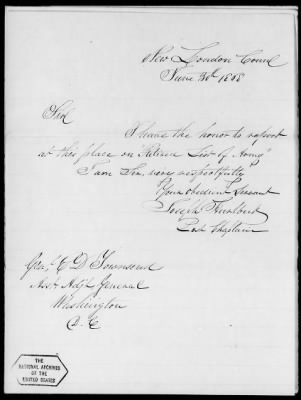 New London Conn
June 30th 1868
Sir
I have the honor to report
at this place on "Retired List of Army"
I am Sir, very respectfully
Your obedient Servant
Joseph
Post Chaplain
Gen'l E D Townsend
Asst Adjt General
Washington
D. C
THE
NATIONAL ARCHIVES
OF THE
UNITED STATES